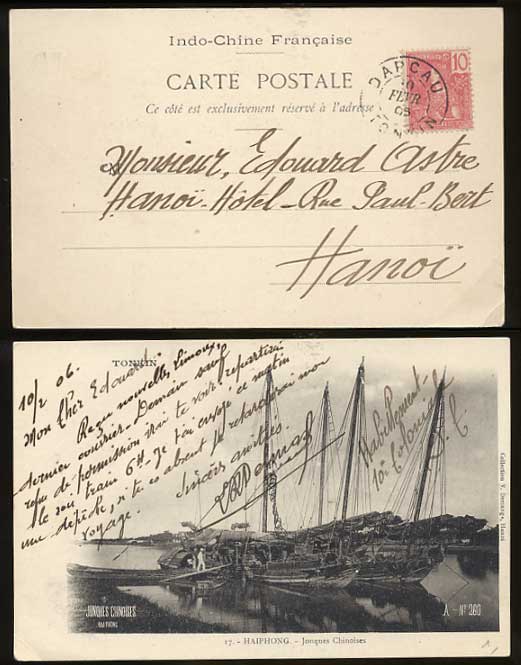 Indo-Chine Française
CARTE POSTALE
Ce côté est exclusivement réservé à l'adresse
10
DAPCAU
10
FEVR
TONKIN
Monsieur, Edouard Astre
Hanoï-Hôtel-Rue Paul-Bert
Hanoï
TONKIN
10/2 06.
Mon cher Edouard,
Reçu nouvelles Limoux,
dernier courrier. Demain sauf
refus de permission irai te voir repartirai
le soir, train 6h. Je t'ai envoyé ce matin
une dépêche, si tu es absent je retarderai mon
voyage. Sincères amitiés.
Habillement
10e Colonial
JONQUES CHINOISES
HAI PHONG
A - Nº 260
17. - HAIPHONG. - Jonques Chinoises
Collection V. Demange, Hanoï